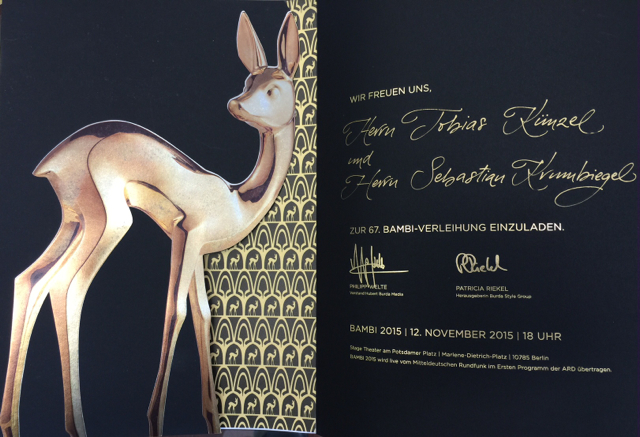 WIR FREUEN UNS,
Herrn Tobias Künzel,
und
Herrn Sebastian Krumbiegel
ZUR 67. BAMBI-VERLEIHUNG EINZULADEN.
PHILIPP WELTE
Vorstand Hubert Burda Media
PRiekel
PATRICIA RIEKEL
Herausgeberin Burda Style Group
BAMBI 2015 | 12. NOVEMBER 2015 | 18 UHR
Stage Theater am Potsdamer Platz | Marlene-Dietrich-Platz | 10785 Berlin
BAMBI 2015 wird live vom Mitteldeutschen Rundfunk im Ersten Programm der ARD übertragen.